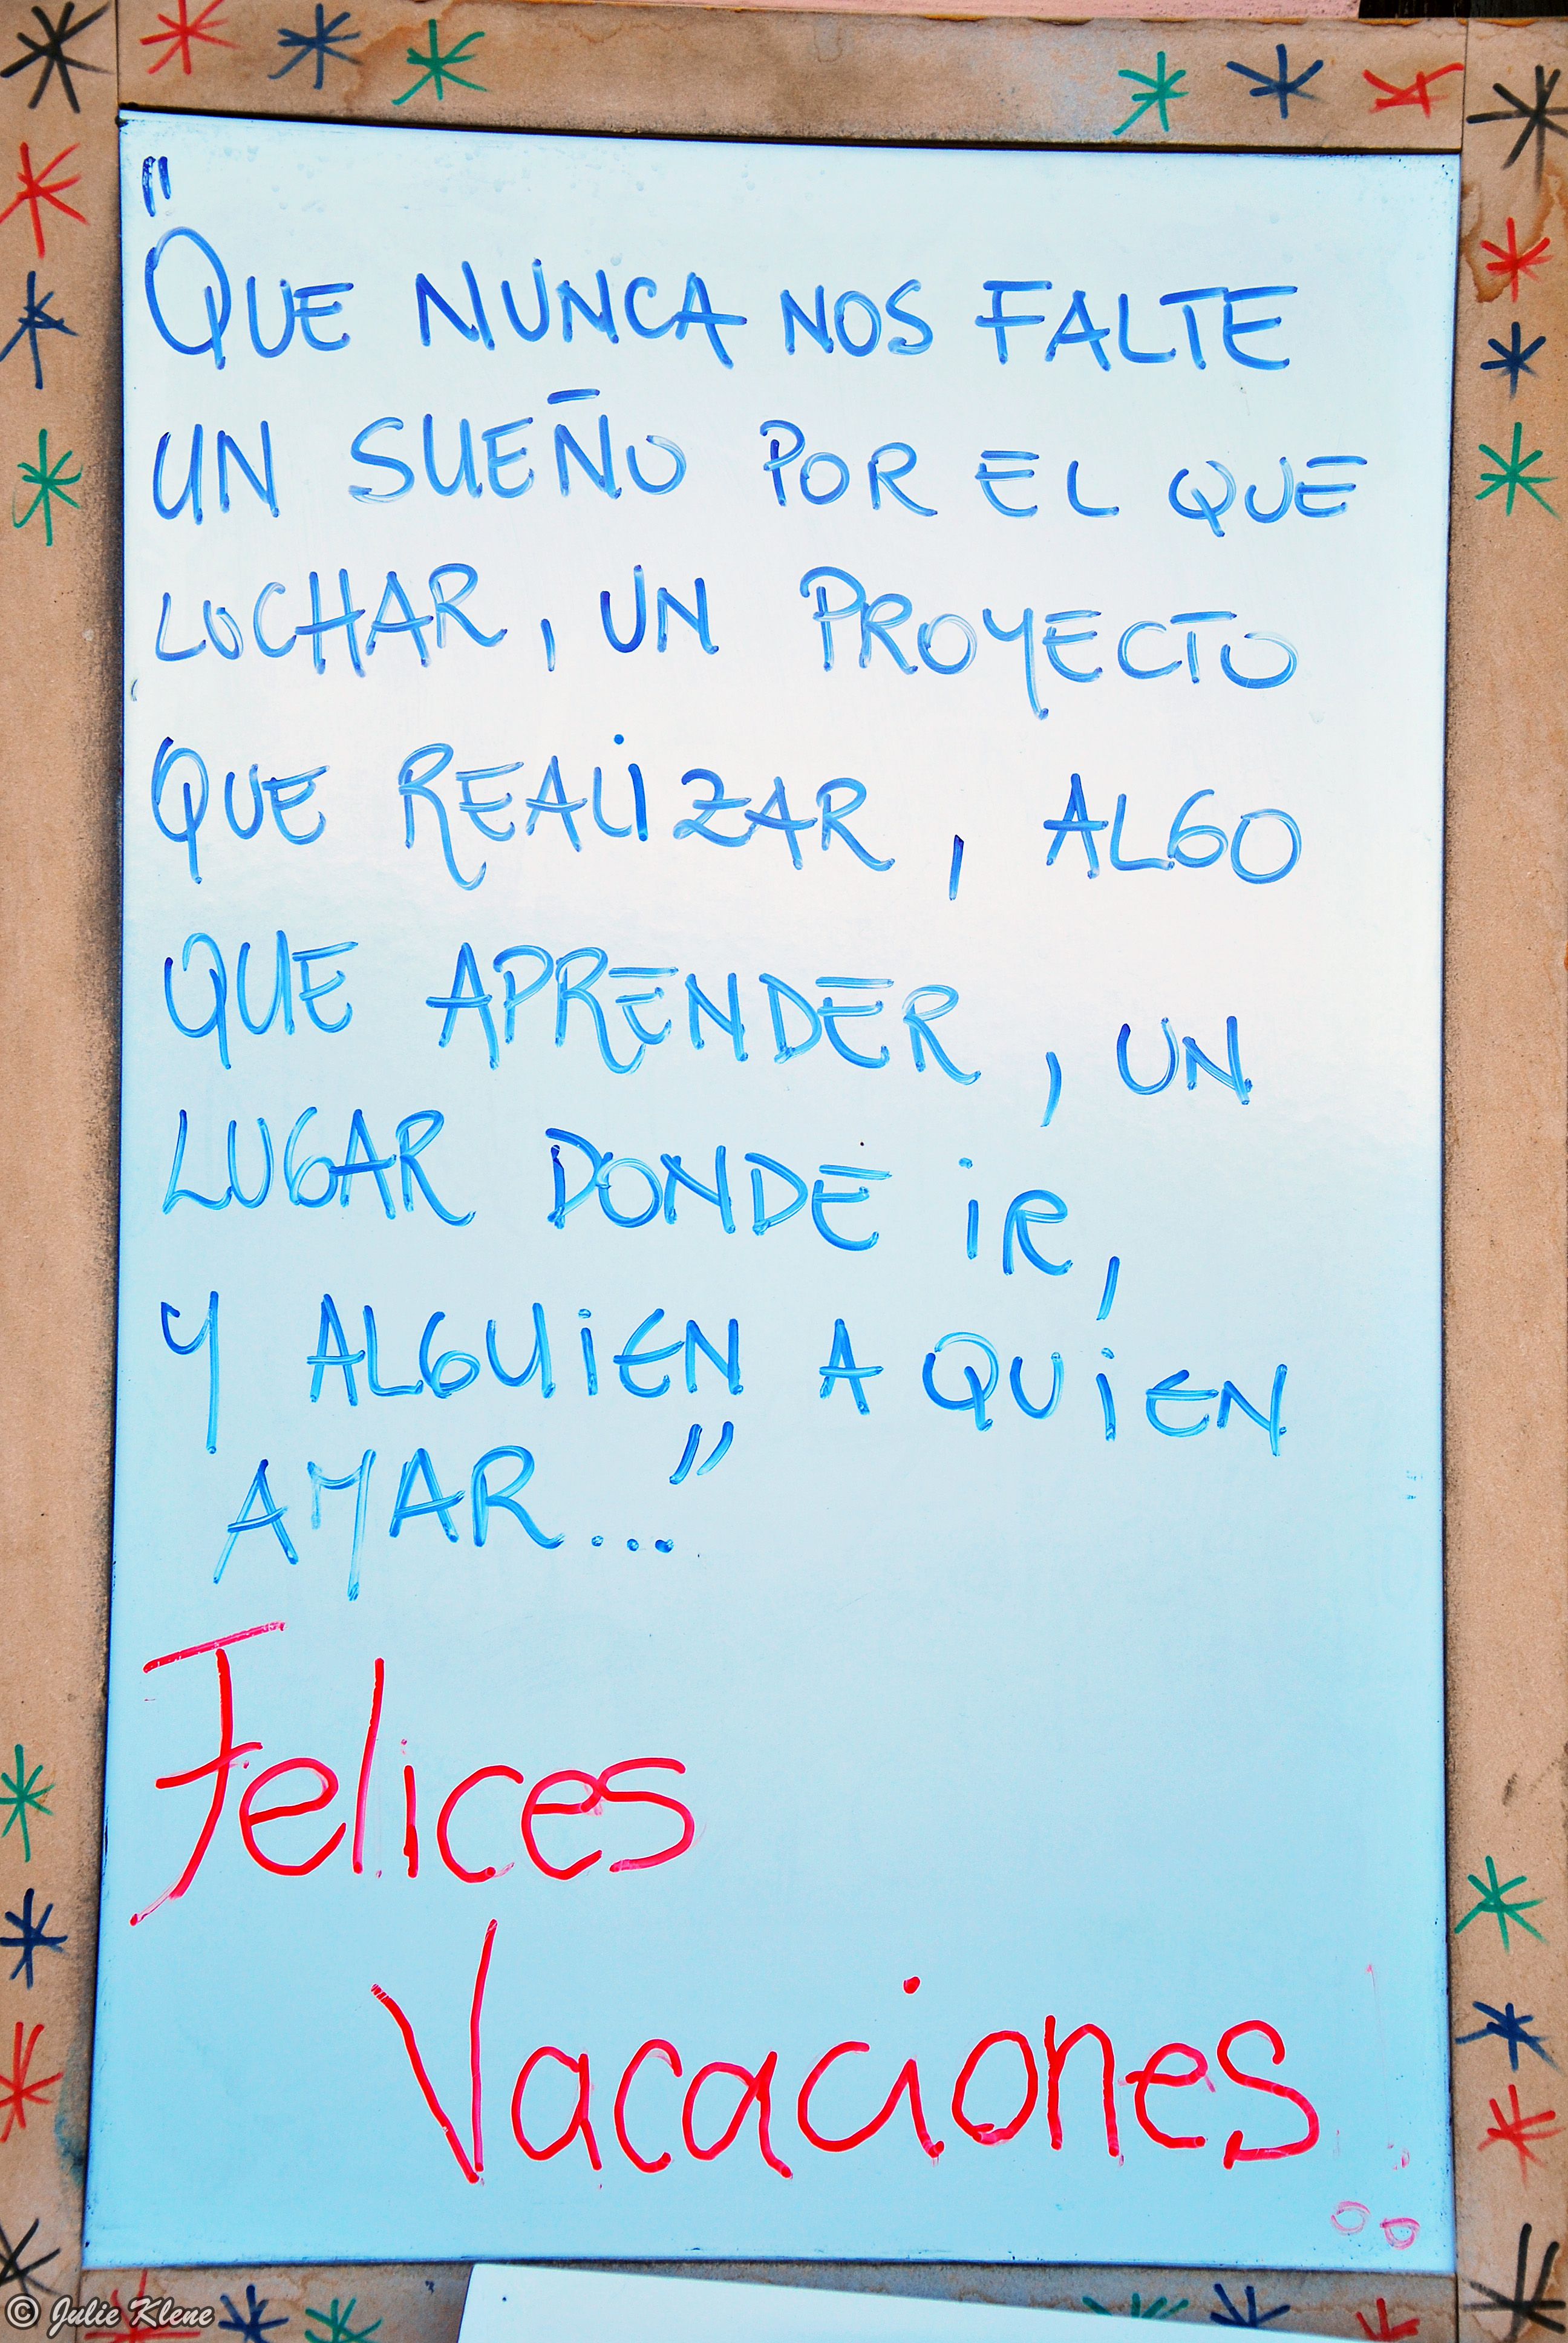 "
QUE NUNCA NOS FALTE
UN SUEÑO POR EL QUE
LUCHAR, UN PROYECTO
QUE REALIZAR, ALGO
QUE APRENDER, UN
LUGAR DONDE IR,
Y ALGUIEN A QUIEN
AMAR..."
Felices
Vacaciones
© Julie Klene